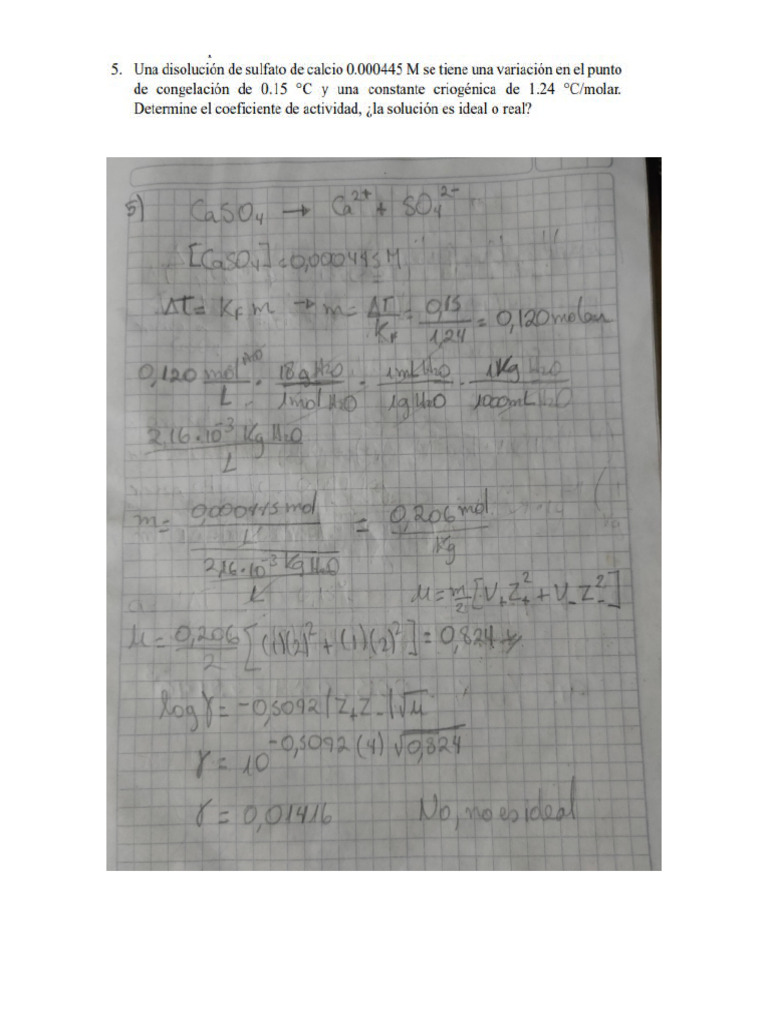 5. Una disolución de sulfato de calcio 0.000445 M se tiene una variación en el punto
de congelación de 0.15 °C y una constante criogénica de 1.24 °C/molar.
Determine el coeficiente de actividad, ¿la solución es ideal o real?
5) CaSO₄ → Ca²⁺ + SO₄²⁻
[CaSO₄] = 0,000445 M
ΔT = K_F m → m = ΔT/K_F = 0,15/1,24 = 0,120 molar
0,120 mol H₂O/L · 18g H₂O/1mol H₂O · 1mL H₂O/1g H₂O · 1Kg H₂O/1000mL H₂O
2,16·10⁻³ Kg H₂O/L
m = (0,000445 mol/L)/(2,16·10⁻³ Kg H₂O/L) = 0,206 mol/Kg
μ = m/2 [V₊Z₊² + V₋Z₋²]
μ = 0,206/2 [(1)(2)² + (1)(2)²] = 0,824
log γ = -0,5092 |Z₊Z₋| √μ
γ = 10^(-0,5092 (4) √0,824)
γ = 0,01416 No, no es ideal